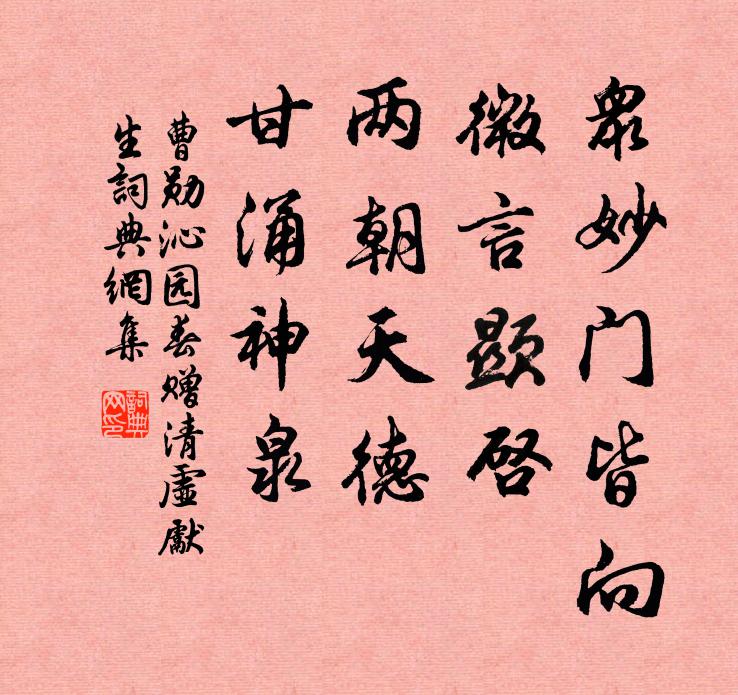 眾妙门皆向
微言顯启
两朝天德
甘涌神泉
曹勋沁园春赠清虚獻
生詞典網集
詞典网印